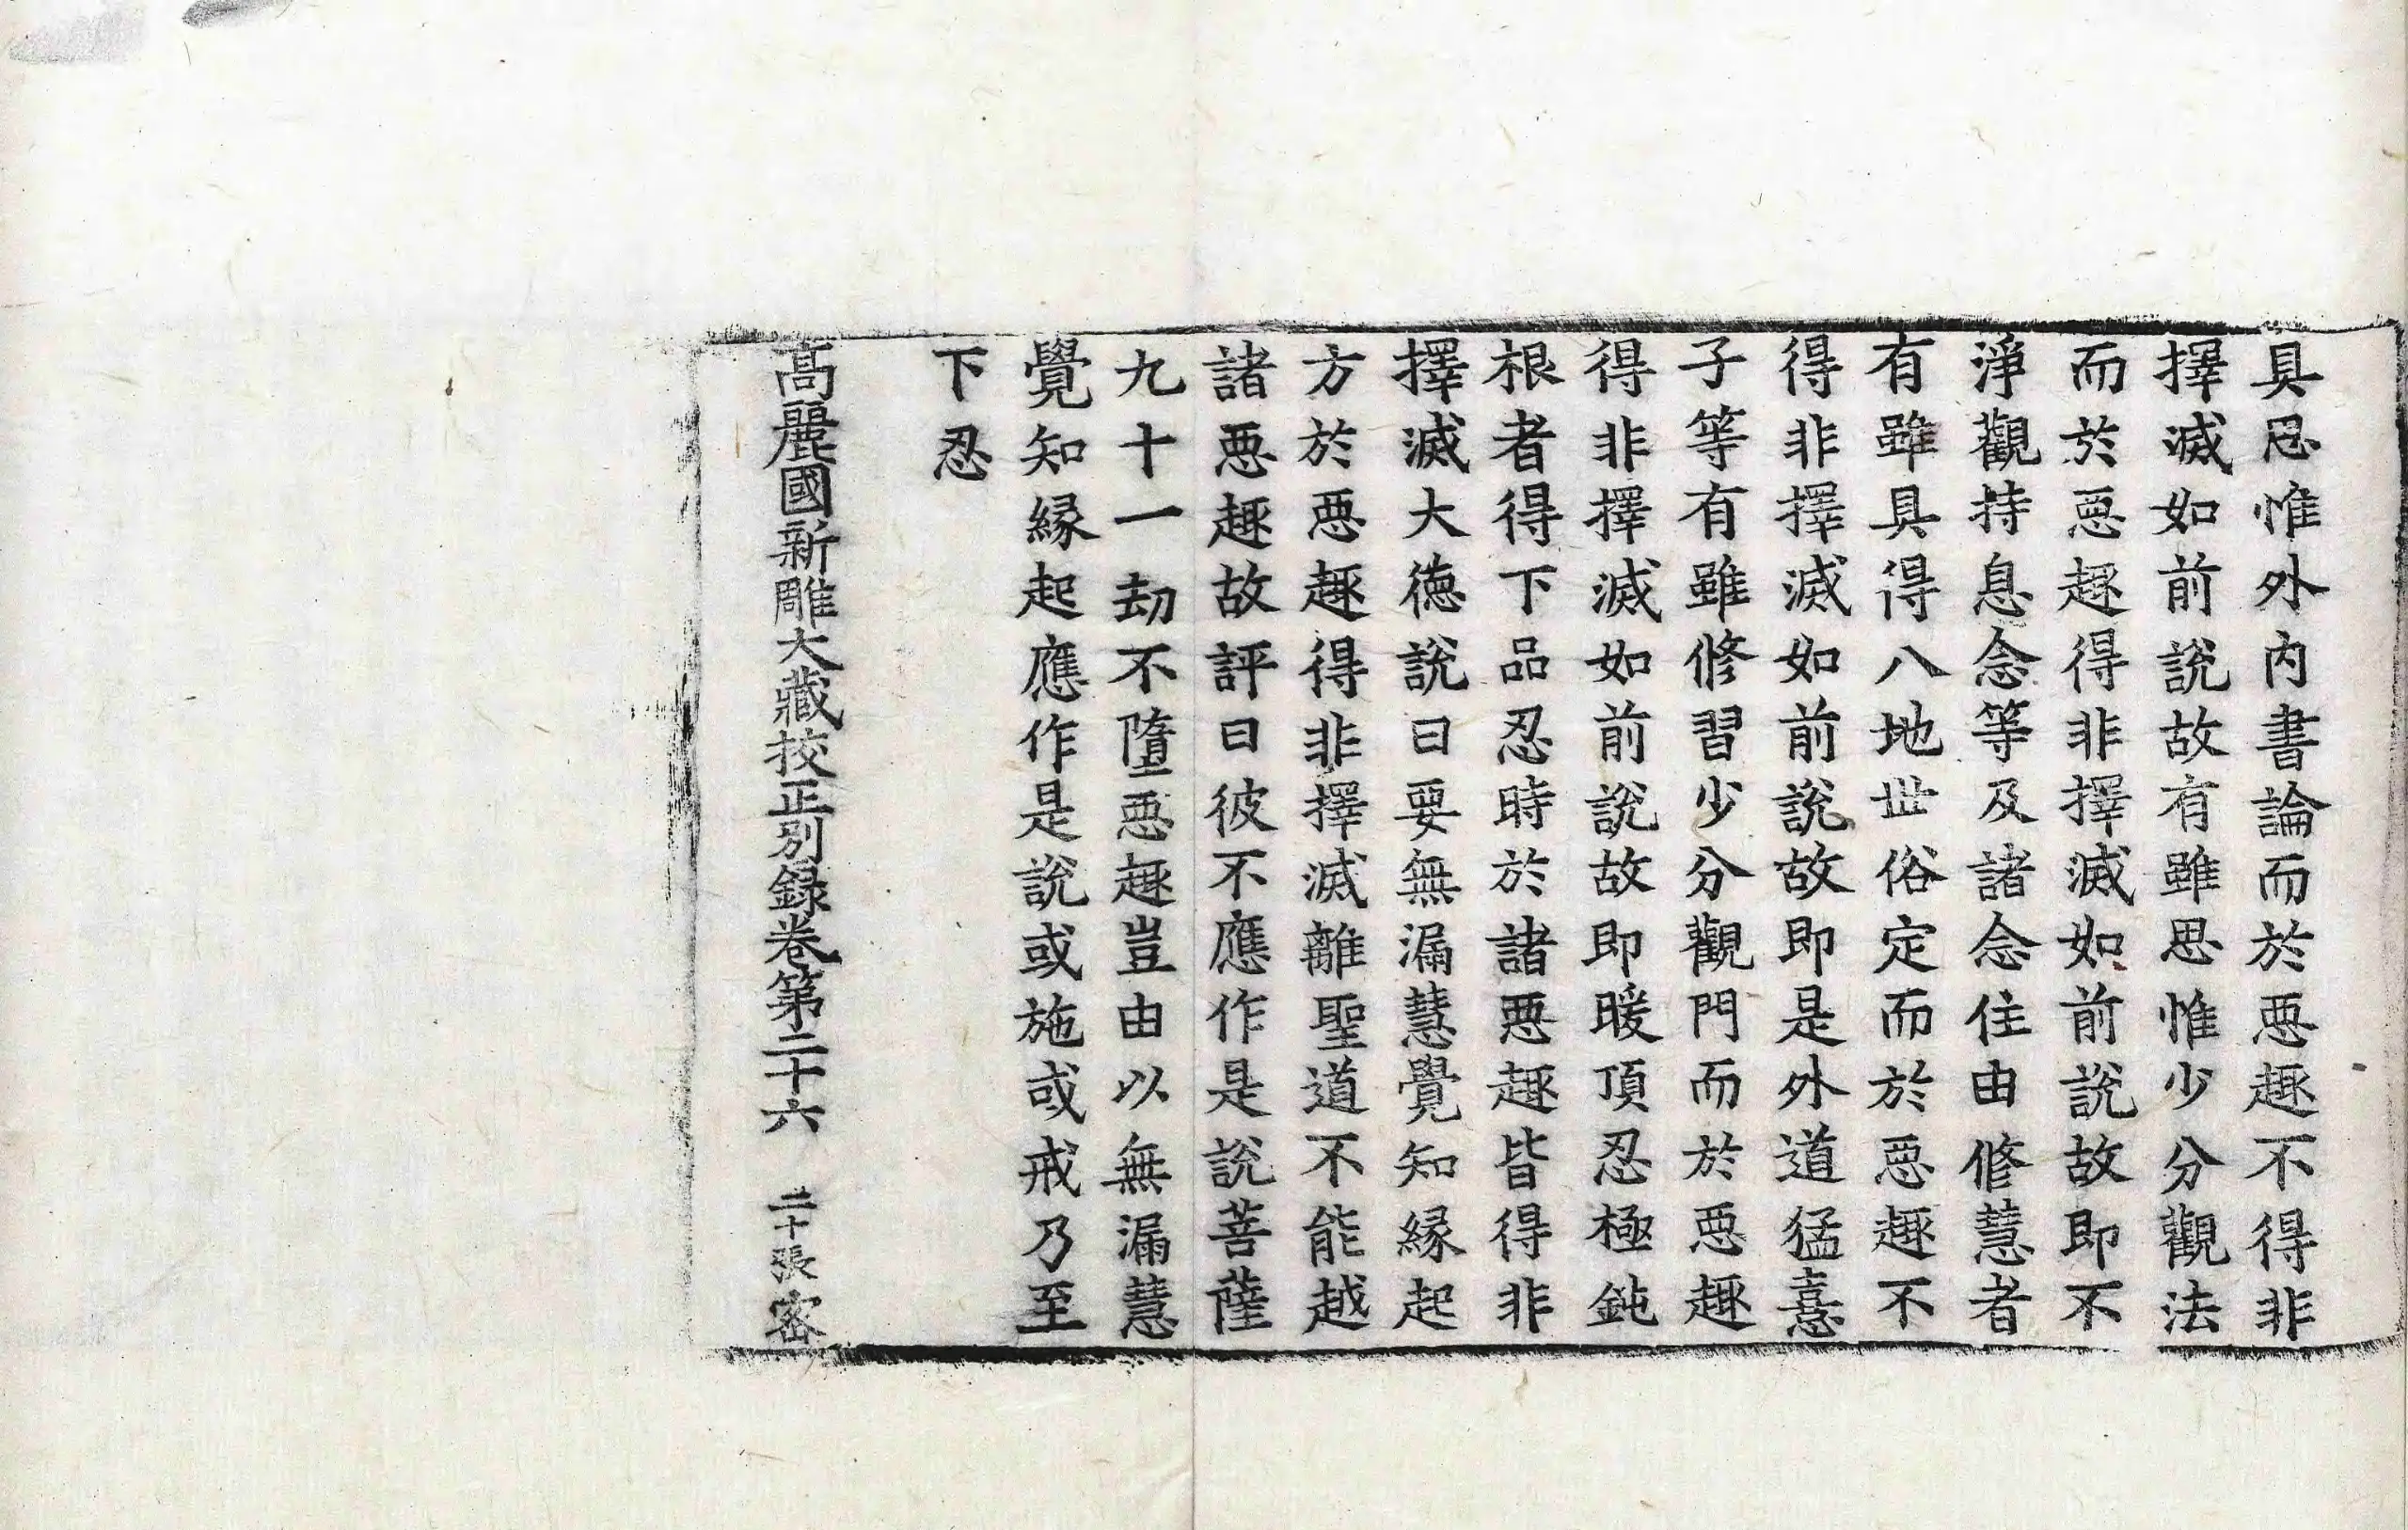 具思惟外内書論而於惡趣不得非
擇滅如前說故有雖思惟少分觀法
而於惡趣得非擇滅如前說故即不
淨觀持息念等及諸念住由修慧者
有雖具得八地世俗定而於惡趣不
得非擇滅如前說故即是外道猛憙
子等有雖修習少分觀門而於惡趣
得非擇滅如前說故即暖頂忍極鈍
根者得下品忍時於諸惡趣皆得非
擇滅大德說曰要無漏慧覺知緣起
方於惡趣得非擇滅離聖道不能越
諸惡趣故評曰彼不應作是說菩薩
九十一劫不墮惡趣豈由以無漏慧
覺知緣起應作是說或施或戒乃至
下忍
高麗國新雕大藏校正別録卷第二十六 二十張 密